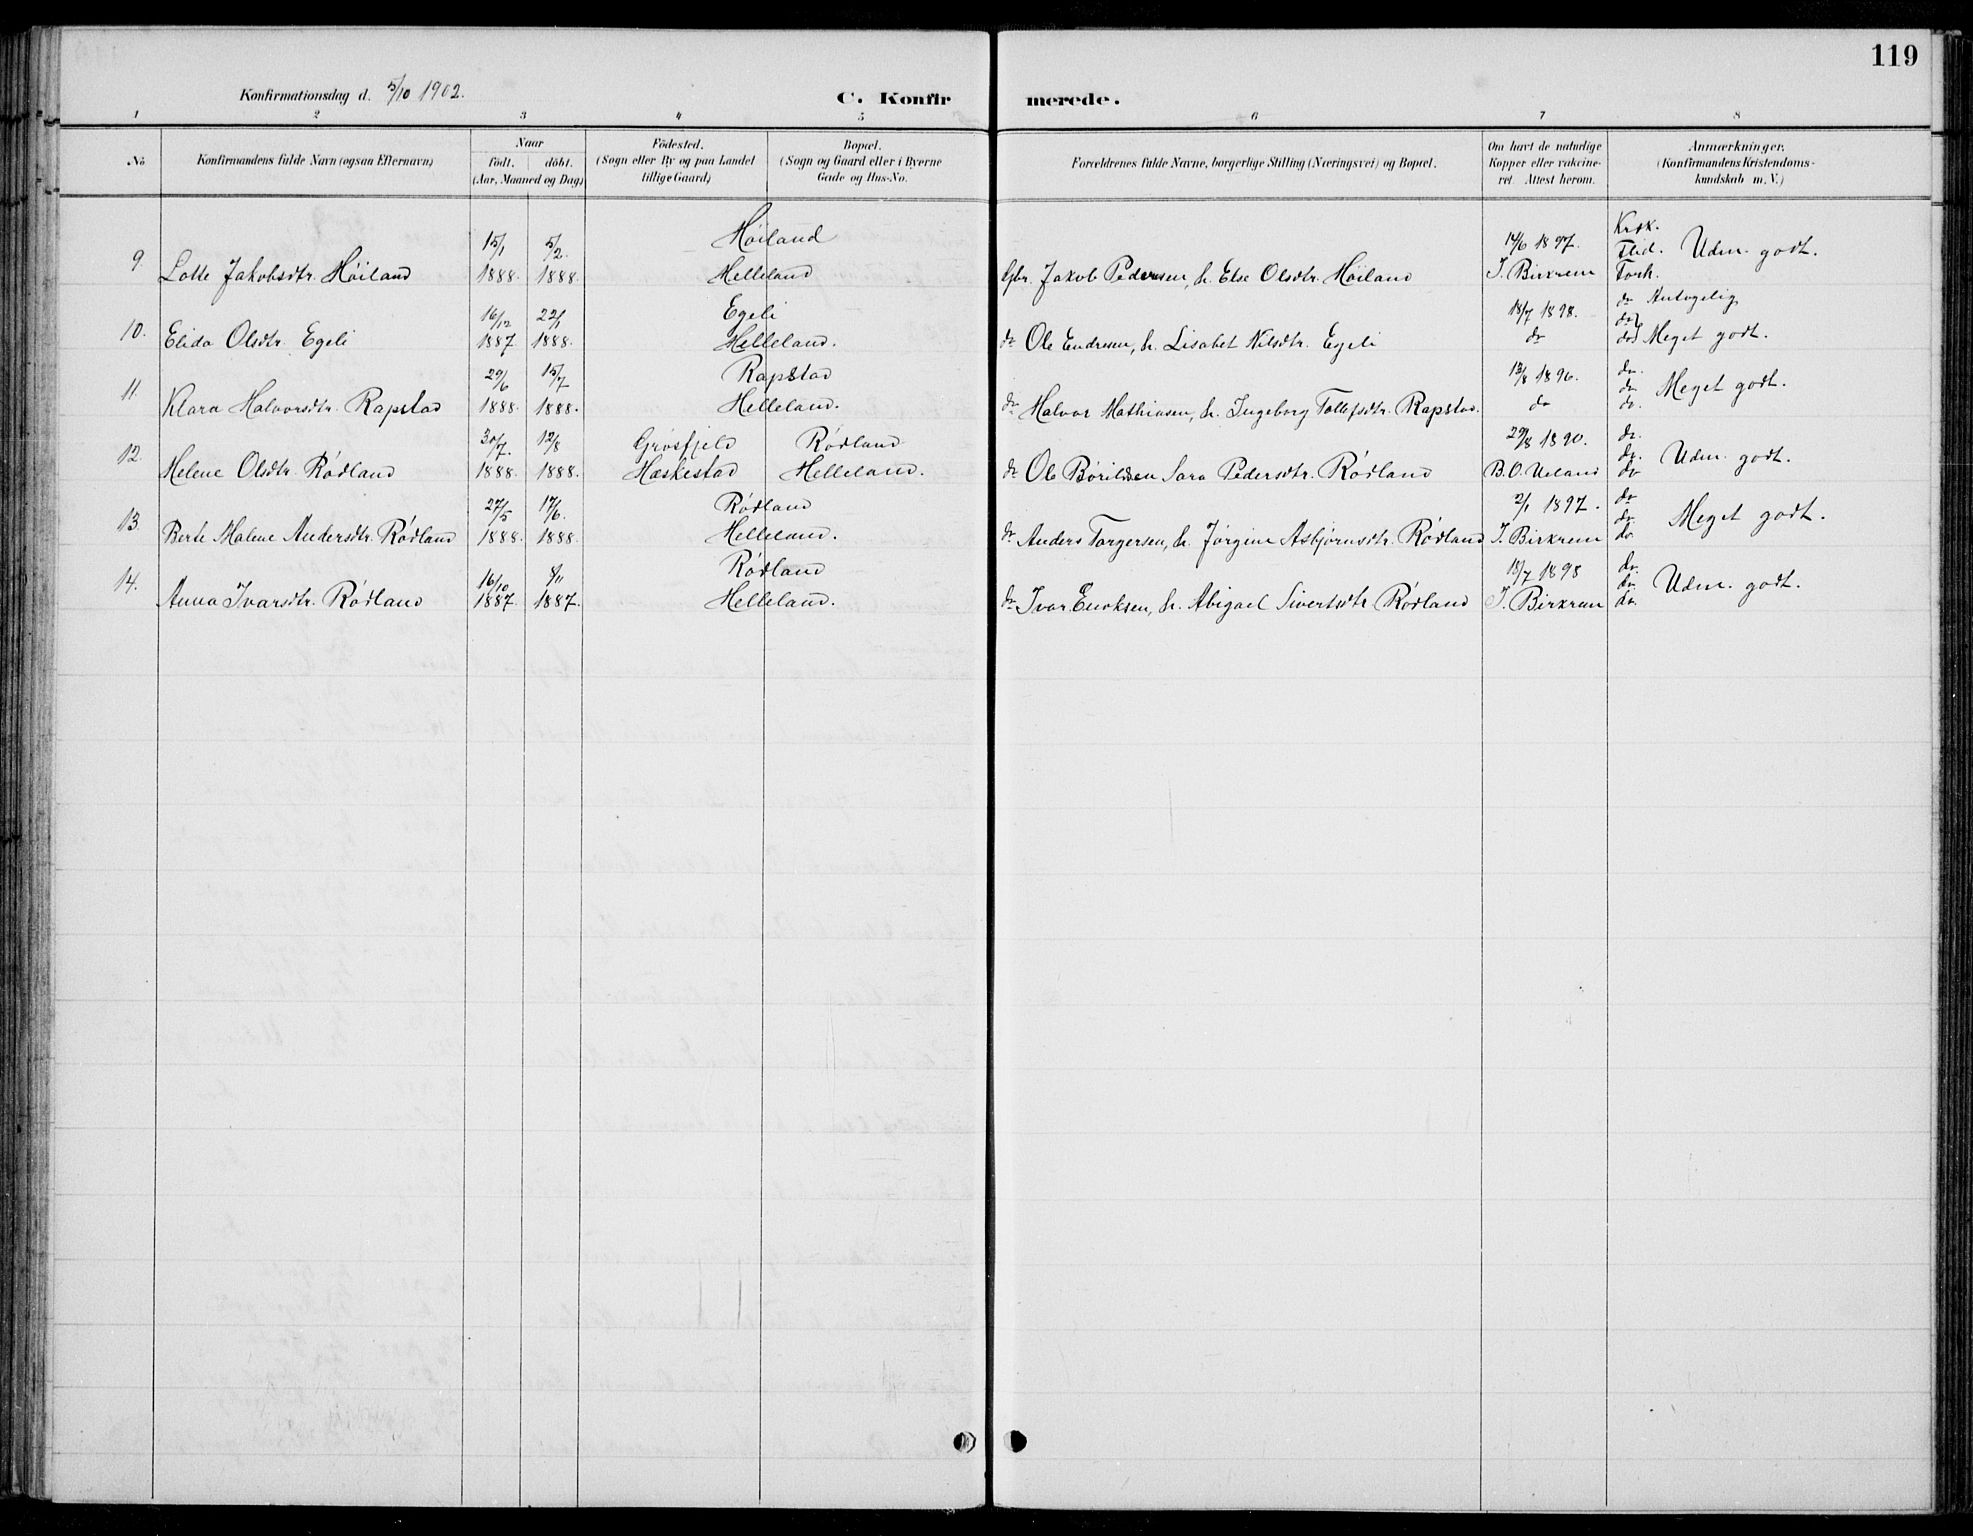 119
Konfirmationsdag d. 5/10 1902.
C. Konfirmerede.
1 2 3 4 5 6 7 8
No
Konfirmandens fulde Navn (ogsaa Efternavn)
Naar
födt. döbt.
(Aar, Maaned og Dag)
Födested.
(Sogn eller By og paa Landet
tillige Gaard)
Bopæl.
(Sogn og Gaard eller i Byerne
Gade og Hus-No.
Forældrenes fulde Navne, borgerlige Stilling (Næringsvei) og Bopæl.
Om havt de naturlige
Kopper eller vakcine-
ret. Attest herom.
Anmærkninger.
(Konfirmandens Kristendoms-
kundskab m. V.)
15/1 5/2. Höiland 14/6 1897. Krsk.
9. Lotte Jakobsdtr. Höiland 1888. 1888. Helleland Gbr. Jakob Pedersen, h. Else Olsdtr. Höiland I. Birkrem Flid. Udm. godt.
Forh.
16/12 22/1 Egeli 18/7 1898. do Antagelig
10. Elida Olsdtr. Egeli 1887 1888. Helleland. do Ole Endresen, h. Lisabet Nilsdtr. Egeli do do do Meget godt.
29/6 15/7 Rapstad 13/8 1896. do.
11. Klara Halvorsdtr. Rapstad 1888. 1888. Helleland. do Halvor Mathiasen, h. Ingeborg Tollefsdtr. Rapstad. do do do. Meget godt.
30/7. 12/8 Grösfjeld Rödland 29/8 1890. do.
12. Helene Olsdtr. Rödland 1888. 1888. Heskestad Helleland. do Ole Börildsen Sara Pedersdtr. Rödland B.O. Ueland do. do Udm. godt.
27/5 17/6. Rödland 2/1 1897. do
13. Berte Malene Andersdtr. Rödland 1888. 1888. Helleland. do Anders Torgersen, h. Jörgine Asbjörnsdtr. Rödland I. Birkrem do do. Meget godt.
16/10 8/11 Rödland 18/7 1898 do.
14. Anna Ivarsdtr. Rödland 1887. 1887. Helleland. do Ivar Enoksen, h. Abigael Sivertsdtr. Rödland I. Birkrem do. do. Udm. godt.